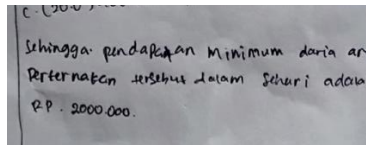 Sehingga. pendapatan minimum daria ar
Perternakan tersebut dalam sehari adala
RP. 2000.000.